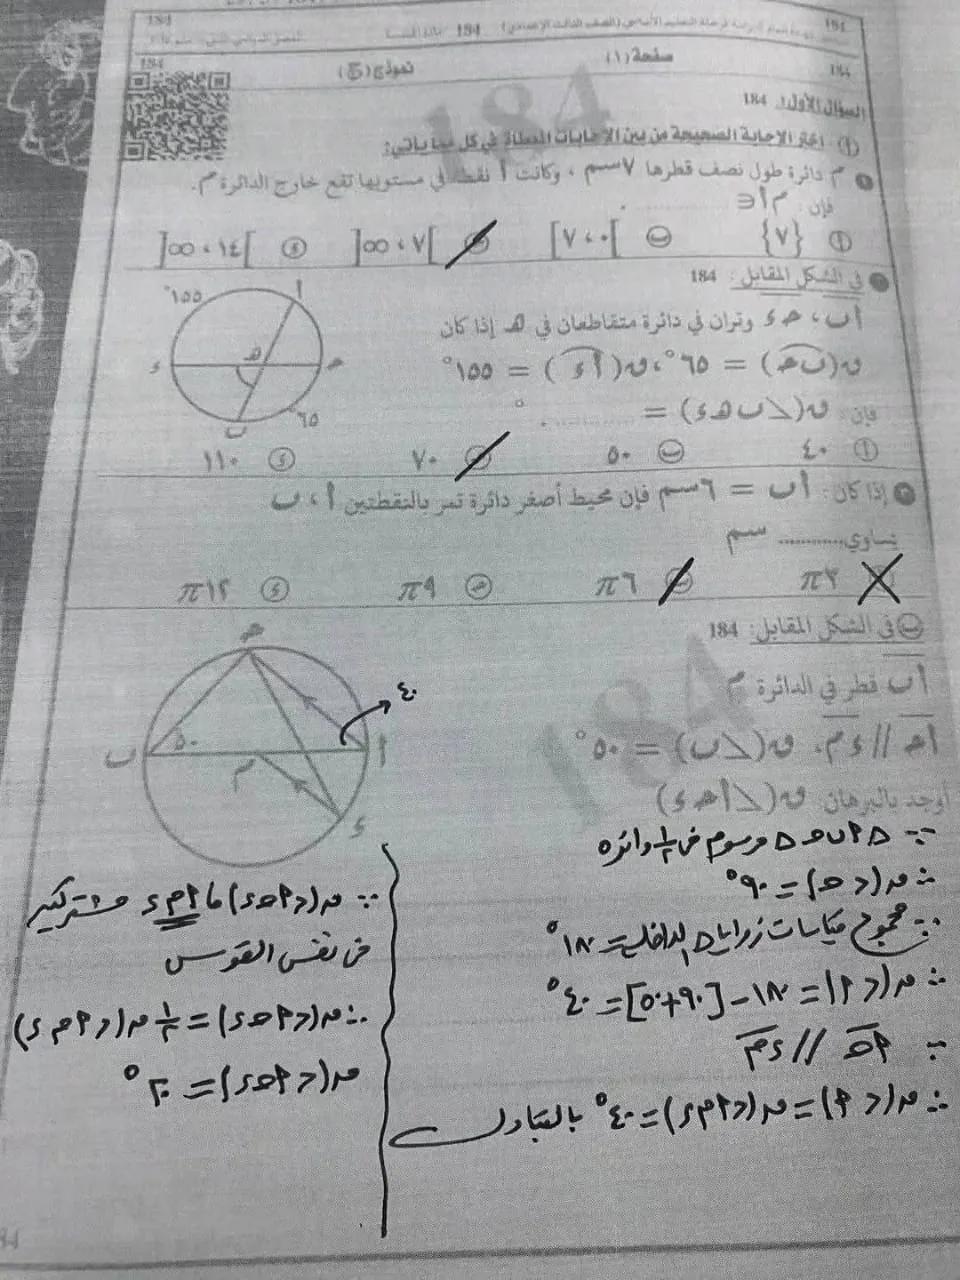 184
184
184 مادة الهندسة
184
صفحة (١)
نموذج (ج)
184
السؤال الأول: 184
(أ) - اختر الإجابة الصحيحة من بين الإجابات المعطاة في كل مما يأتي:
١ م دائرة طول نصف قطرها ٧سم ، وكانت أ نقطة في مستويها تقع خارج الدائرة م.
فإن: م أ ∈ ..........
أ {٧}
ب ]٠ ، ٧[
]٧ ، ∞[
د ]١٤ ، ∞[
في الشكل المقابل: 184
أب ، جـ د وتران في دائرة متقاطعان في هـ إذا كان
ق(ب جـ) = ٦٥° ، ق(أ د) = ١٥٥°
فإن: ق(∠ ب هـ د) = .......... °
أ ٤٠
ب ٥٠
٧٠
د ١١٠
١٥٥°
أ
د
هـ
جـ
ب
٦٥
٣ إذا كان: أب = ٦سم فإن محيط أصغر دائرة تمر بالنقطتين أ ، ب
يساوي............ سم
π٣
π٦
جـ π٩
د π١٢
ب في الشكل المقابل: 184
أب قطر في الدائرة م
أجـ // دم، ق(∠ب) = ٥٠°
أوجد بالبرهان ق(∠أ جـ د)
جـ
٤٠
ب
٥٠
م
أ
د
∵ △ أ ب جـ △ مرسوم في ½ دائرة
∴ ق(∠ جـ) = ٩٠°
∵ مجموع قياسات زوايا △ الداخلة = ١٨٠°
∴ ق(∠ أ) = ١٨٠ - [٩٠+٥٠] = ٤٠°
∵ أجـ // دم
∴ ق(∠ أ) = ق(∠أ م د) = ٤٠° بالتبادل
∵ ق(∠أ جـ د) ، أ م د مشتركتين
في نفس القوس
∴ ق(∠أ جـ د) = ½ ق(∠أ م د)
ق(∠أ جـ د) = ٢٠°